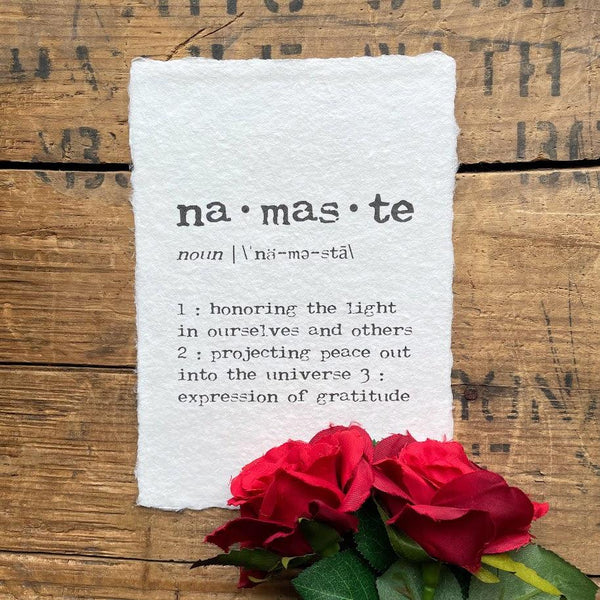 na • mas • te
noun | \ˈnä-mə-stā\
1 : honoring the light
in ourselves and others
2 : projecting peace out
into the universe 3 :
expression of gratitude